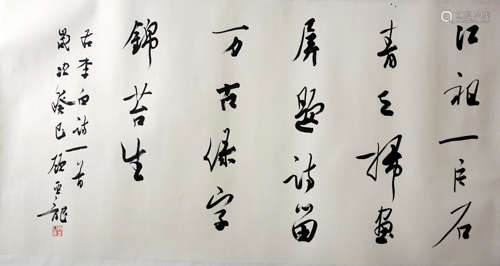 江祖一片石
青天掃畫
屏題詩留
万古綠字
錦苔生
右李白詩一首
歲次癸巳顧亞龍